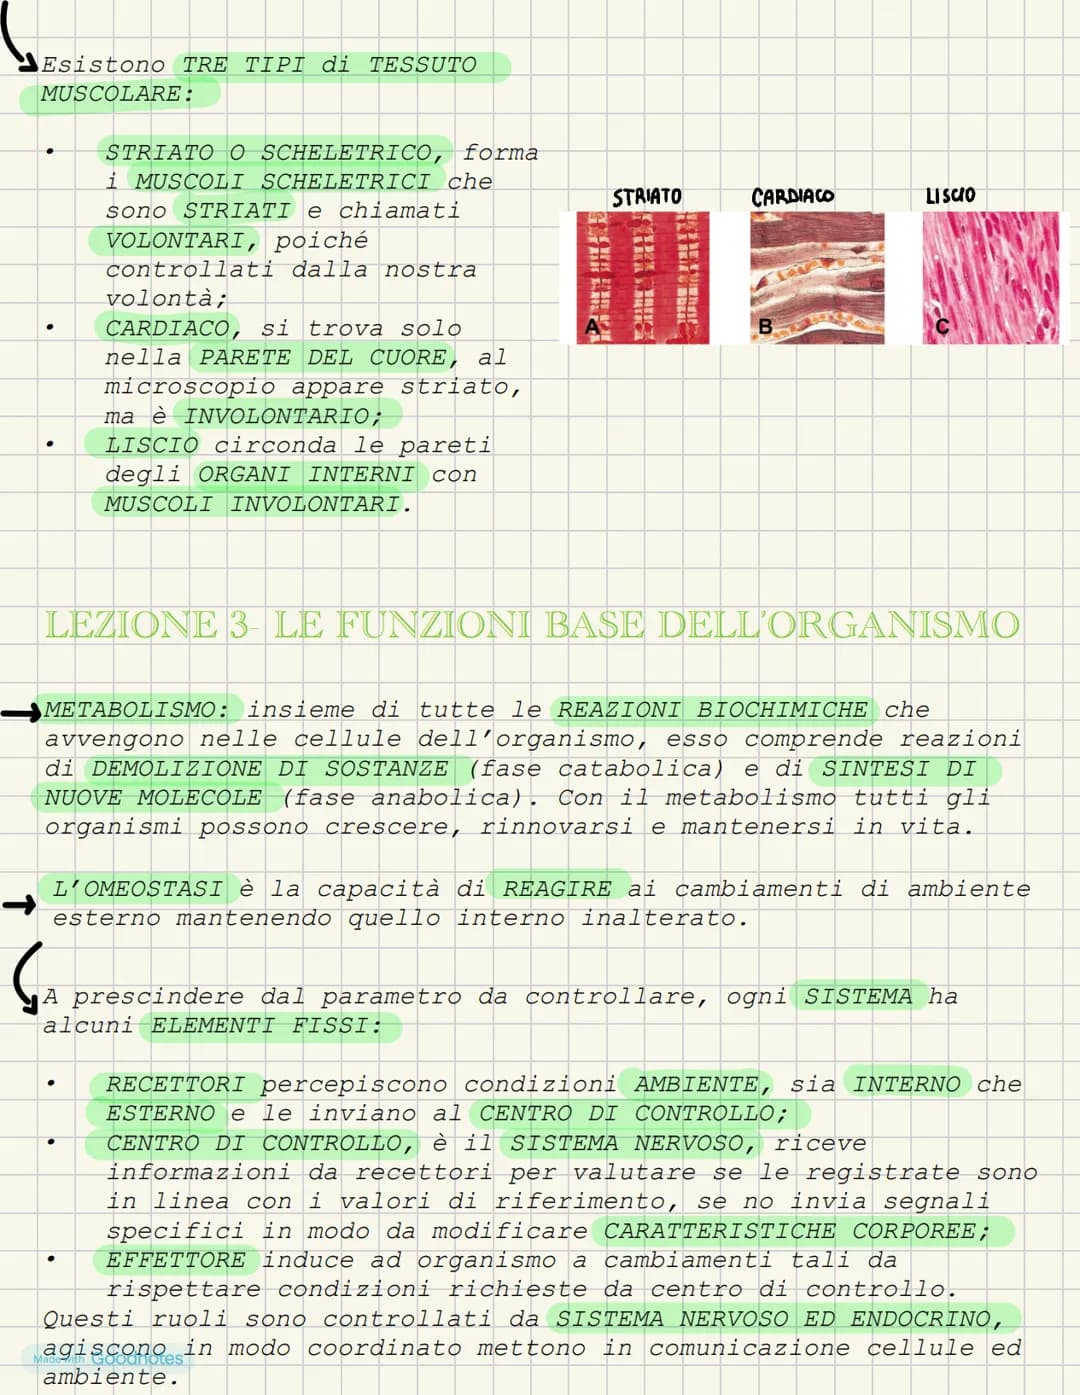 Esistono TRE TIPI di TESSUTO
MUSCOLARE:
• STRIATO O SCHELETRICO, forma
i MUSCOLI SCHELETRICI che
sono STRIATI e chiamati
VOLONTARI, poiché
controllati dalla nostra
volontà;
• CARDIACO, si trova solo
nella PARETE DEL CUORE, al
microscopio appare striato,
ma è INVOLONTARIO;
• LISCIO circonda le pareti
degli ORGANI INTERNI con
MUSCOLI INVOLONTARI.
STRIATO CARDIACO LISCIO
A B C
LEZIONE 3- LE FUNZIONI BASE DELL'ORGANISMO
METABOLISMO: insieme di tutte le REAZIONI BIOCHIMICHE che
avvengono nelle cellule dell'organismo, esso comprende reazioni
di DEMOLIZIONE DI SOSTANZE (fase catabolica) e di SINTESI DI
NUOVE MOLECOLE (fase anabolica). Con il metabolismo tutti gli
organismi possono crescere, rinnovarsi e mantenersi in vita.
L'OMEOSTASI è la capacità di REAGIRE ai cambiamenti di ambiente
esterno mantenendo quello interno inalterato.
A prescindere dal parametro da controllare, ogni SISTEMA ha
alcuni ELEMENTI FISSI:
• RECETTORI percepiscono condizioni AMBIENTE, sia INTERNO che
ESTERNO e le inviano al CENTRO DI CONTROLLO;
• CENTRO DI CONTROLLO, è il SISTEMA NERVOSO, riceve
informazioni da recettori per valutare se le registrate sono
in linea con i valori di riferimento, se no invia segnali
specifici in modo da modificare CARATTERISTICHE CORPOREE;
• EFFETTORE induce ad organismo a cambiamenti tali da
rispettare condizioni richieste da centro di controllo.
Questi ruoli sono controllati da SISTEMA NERVOSO ED ENDOCRINO,
agiscono in modo coordinato mettono in comunicazione cellule ed
Made with Goodnotes
ambiente.